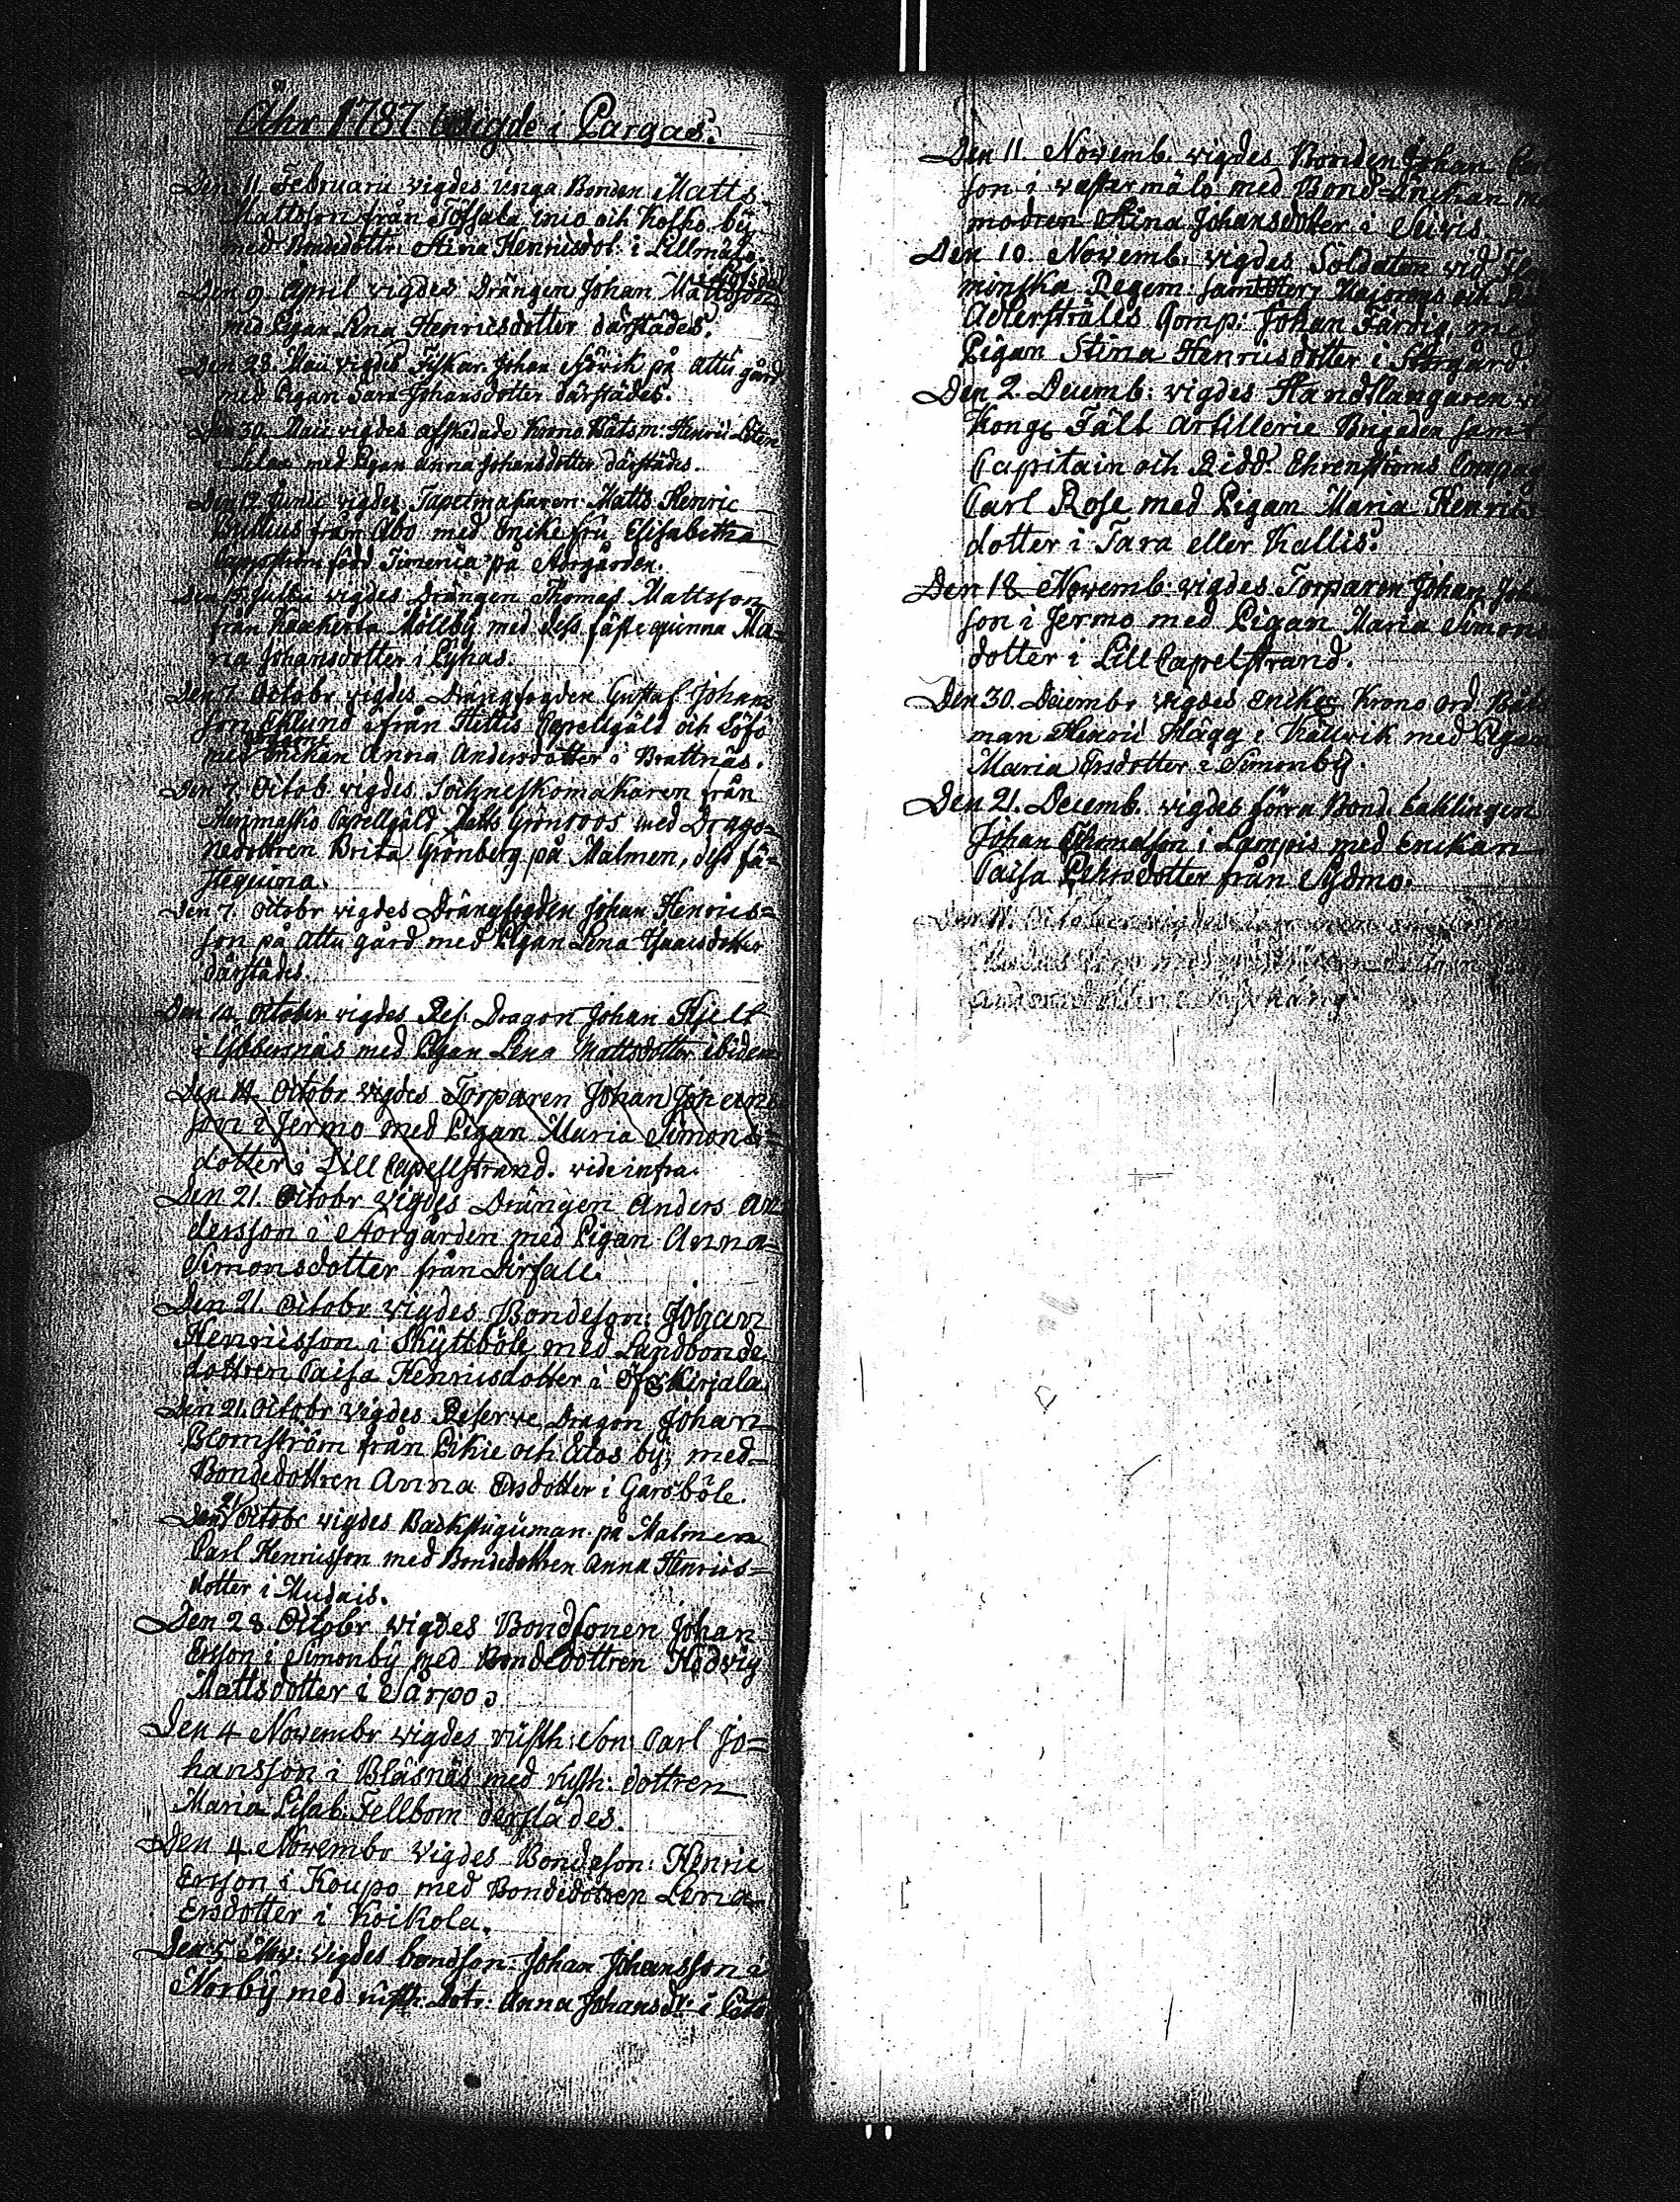 Åhr 1787 wigde i Pargas.
Den 11. Februarii vigdes unga Bonden Matts
Mattsson från Töfsala inio och Kolko bÿ
med Bondedottr: Stina Henricsdot: i Lillmälö.
Den 9. April vigdes Drängen Johan Mattsson
med Pigan Lena Henricsdotter därstädes.
Den 28. Maii vigdes Fiskar. Johan Sjövik på Attu gård
med Pigan Sara Johansdotter därstädes.
Den 30. Maii vigdes afskedade Krono Båtsm: Henric
med Pigan Anna Johansdotter därstädes.
Den 12. Junii vigdes Tapetmakaren Matts Henric
från Åbo med Enkefru Elisabetha
född på Storgården.
Den 15. Julii vigdes Drängen Thomas Mattsson
från Mölbÿ med dess fästequinna Ma=
ria Johansdotter i Pÿhas.
Den 7. Octobr vigdes Drängfogden Gustaf Johans
son Eklund från Hittis Capellgäld och Löfö
med Enckan Anna Andersdotter i Brattnäs.
Den 7. Octob vigdes Sochneskomakaren från
Capellgäld Matts Grönroos med Drago=
nedottren Brita Grönberg på Malmen, dess fä=
stequina.
Den 7. Octobr vigdes Drängfogden Johan Henrics=
son på Attu gård med Pigan Lena Isaacsdotter
därstädes.
Den 14. October vigdes Res. Dragon Johan Hjelt
i Ÿbbersnäs med Pigan Lena Mattsdotter ibidem
Den 14. Octobr vigdes Torparen Johan Johans
son i Jermo med Pigan Maria Simons=
dotter i Lill Capellstrand. vide infra.
Den 21. Octobr vigdes Drängen Anders An
dersson i Storgården med Pigan Anna
Simonsdotter från Dirfall.
Den 21. Octobr vigdes Bondeson: Johan
Henricsson i Skÿttböle med Landbonde
dottren Caisa Henricsdotter i Öfverkirjala
Den 21. Octobr vigdes Reserve Dragon Johan
Blomström från Pikie och bÿ, med
Bondedottren Anna Ersdotter i Garsböle.
Den 21 Octobr vigdes Backstuguman på Malmen
Carl Henricsson med Bondedottren Anna Henrics=
dotter i Mudais.
Den 28. Octobr vigdes Bondsonen Johan
Ersson i Simonbÿ med Bondedottren Hedvig
Mattsdotter i Särpo.
Den 4 Novembr vigdes rusth: Son: Carl Jo=
hansson i Bläsnäs med rusth: dottren
Maria Lisab. Fellbom derstädes.
Den 4. Novembr vigdes Bondeson: Henric
Ersson i Koupo med Bondedottren Lena
Ersdotter i Koikola.
Den 5 Nov: vigdes bondson: Johan Johansson i
Norbÿ med rusth. dotr: Anna Johansdr: i
Den 11. Novemb. vigdes Bonden Johan
son i västermälö med Bond-Enckan
modren Stina Johansdotter i
Den 10. Novemb. vigdes Soldaten vid
minska Regem: samt Majorens och
Adlerstråles Comp: Johan Färdig, med
Pigan Stina Henricsdotter i Storgård.
Den 2. Decemb: vigdes Handtlangaren vid
Kongl Fält Artillerie Brigaden samt
Capitain och Ridd. Ehrenströms Compag
Carl Rose med Pigan Maria Henrics
dotter i Tara eller Kallis.
Den 18 Novemb. vigdes Torparen Johan
son i Jermo med Pigan Maria Simons
dotter i Lill Capelstrand.
Den 30. Decembr vigdes Krono ord. Båts
man Henric Hägg i med Pigan
Maria Ersdotter i Simonbÿ.
Den 21. Decemb. vigdes förra Bond. Enklingen
Johan Thomasson i Lampis med Enckan
Caisa Pehrsdotter från Sÿdmo.